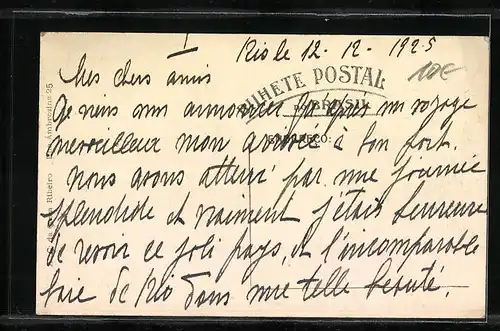 I
Rio le 12-12-1925
10€
BILHETE POSTAL
BRASIL
ENDEREÇO:
Mes chers amis
Je viens vous annoncer qu'après un voyage
merveilleux mon arrivée à bon port.
Nous avons atterri par une journée
splendide et vraiment j'étais heureuse
de revoir ce joli pays, et l'incomparable
baie de Rio dans une telle beauté.
Ribeiro